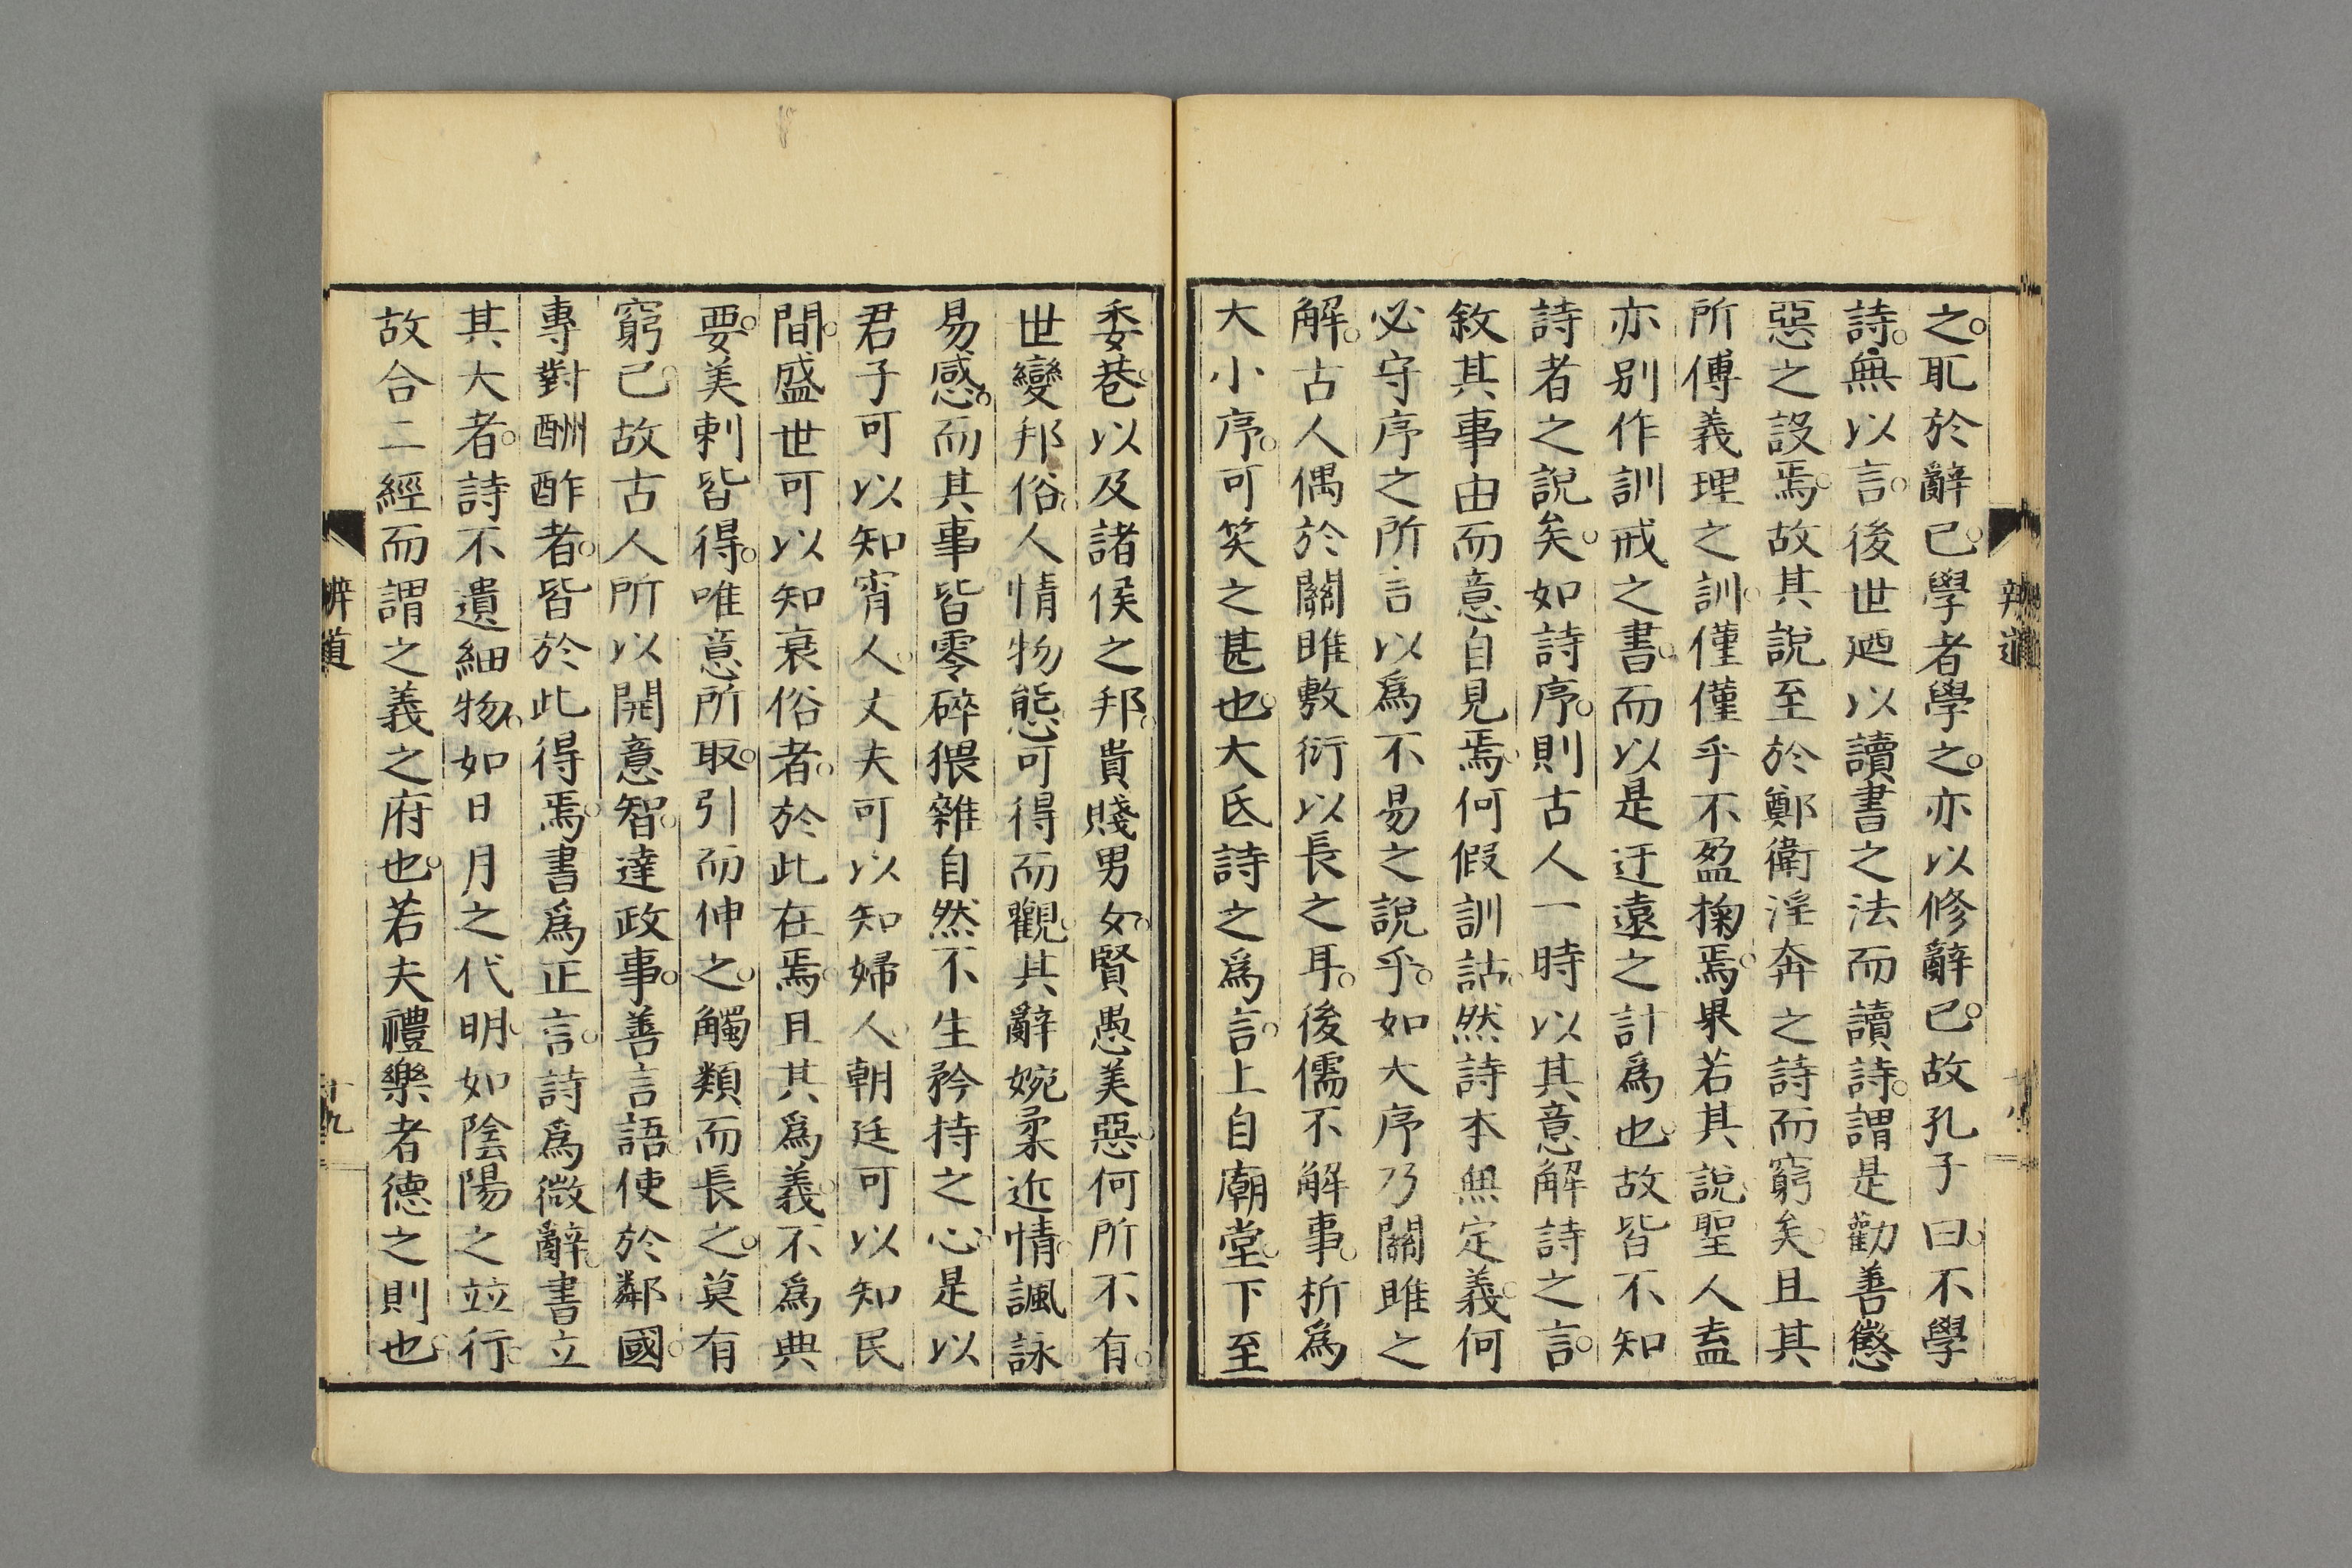 之。耴於辭已。學者學之。亦以修辭已。故孔子曰。不學
詩。無以言。後世廼以讀書之法而讀詩。謂是勸善懲
惡之設焉。故其說至於鄭衛淫奔之詩而窮矣。且其
所傳義理之訓。僅僅乎不盈掬焉。果若其說。聖人盍
亦別作訓戒之書。而以是迂遠之計爲也。故皆不知
詩者之說矣。如詩序。則古人一時以其意解詩之言。
敘其事由而意自見焉。何假訓詁。然詩本無定義。何
必守序之所言以爲不易之說乎。如大序乃關雎之
解。古人偶於關雎敷衍以長之耳。後儒不解事。析爲
大小序。可笑之甚也。大氐詩之爲言。上自廟堂。下至
委巷。以及諸侯之邦。貴賤男女。賢愚美惡。何所不有。
世變邦俗。人情物態。可得而觀。其辭婉柔近情。諷詠
易感。而其事皆零碎猥雜。自然不生矜持之心。是以
君子可以知宵人。丈夫可以知婦人。朝廷可以知民
間。盛世可以知衰俗者。於此在焉。且其爲義。不爲典
要。美刺皆得。唯意所取。引而伸之。觸類而長之。莫有
窮已。故古人所以開意智。達政事。善言語。使於鄰國。
專對酬酢者。皆於此得焉。書爲正言。詩爲微辭。書立
其大者。詩不遺細物。如日月之代明。如陰陽之竝行。
故合二經而謂之義之府也。若夫禮樂者德之則也。
辨道
十九